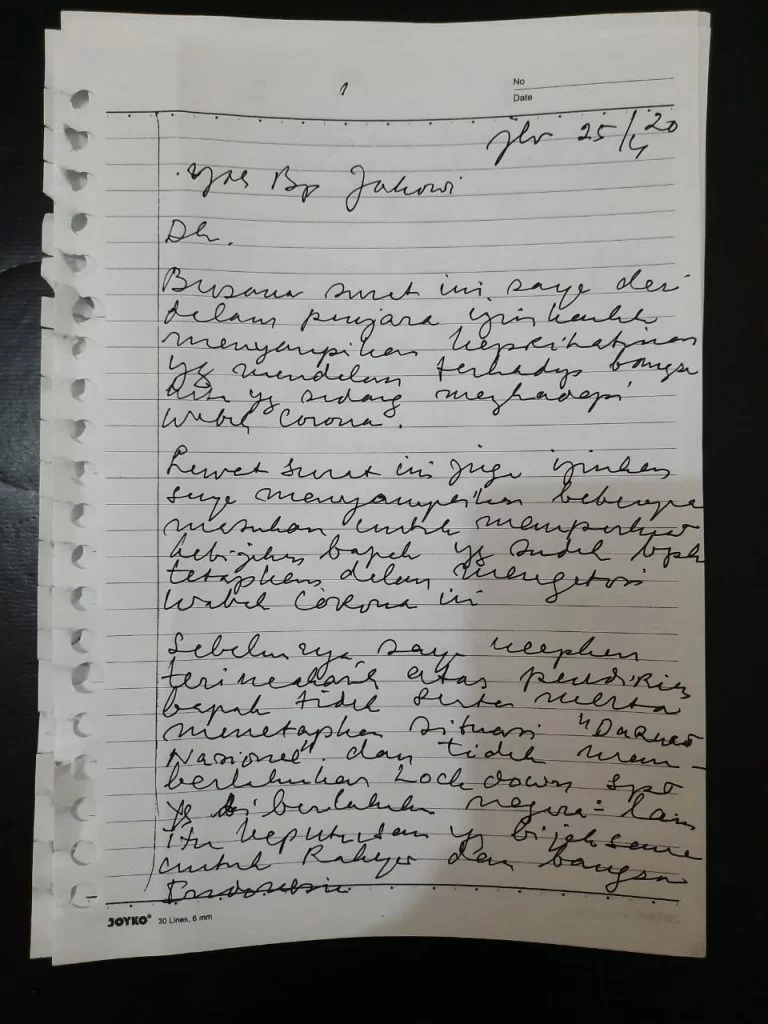 1
No
Date
25/4 20
Yth Bp Jokowi
Dh.
Bersama surat ini, saya dari
dalam penjara izinkanlah
menyampikan keprihatinan
yg mendalam terhadap bangsa
kita yg sedang meghadapi
Wabah Corona.
Lewat surat ini juga izinkan
saya menyampaikan beberapa
masukan untuk memperkuat
kebijakan bapak yg sudah bpk
tetapkan dalam mengatasi
Wabah Corona ini
Sebelumnya saya ucapkan
terimakasih atas pendirian
bapak tidak serta merta
menetapkan situasi "Darurat
Nasional" dan tidak mem-
berlakukan Lock down spt
yg diberlakukan negara² lain
itu keputusan yg bijaksana
untuk Rakyat dan bangsa
Indonesia
JOYKO® 30 Lines, 6 mm